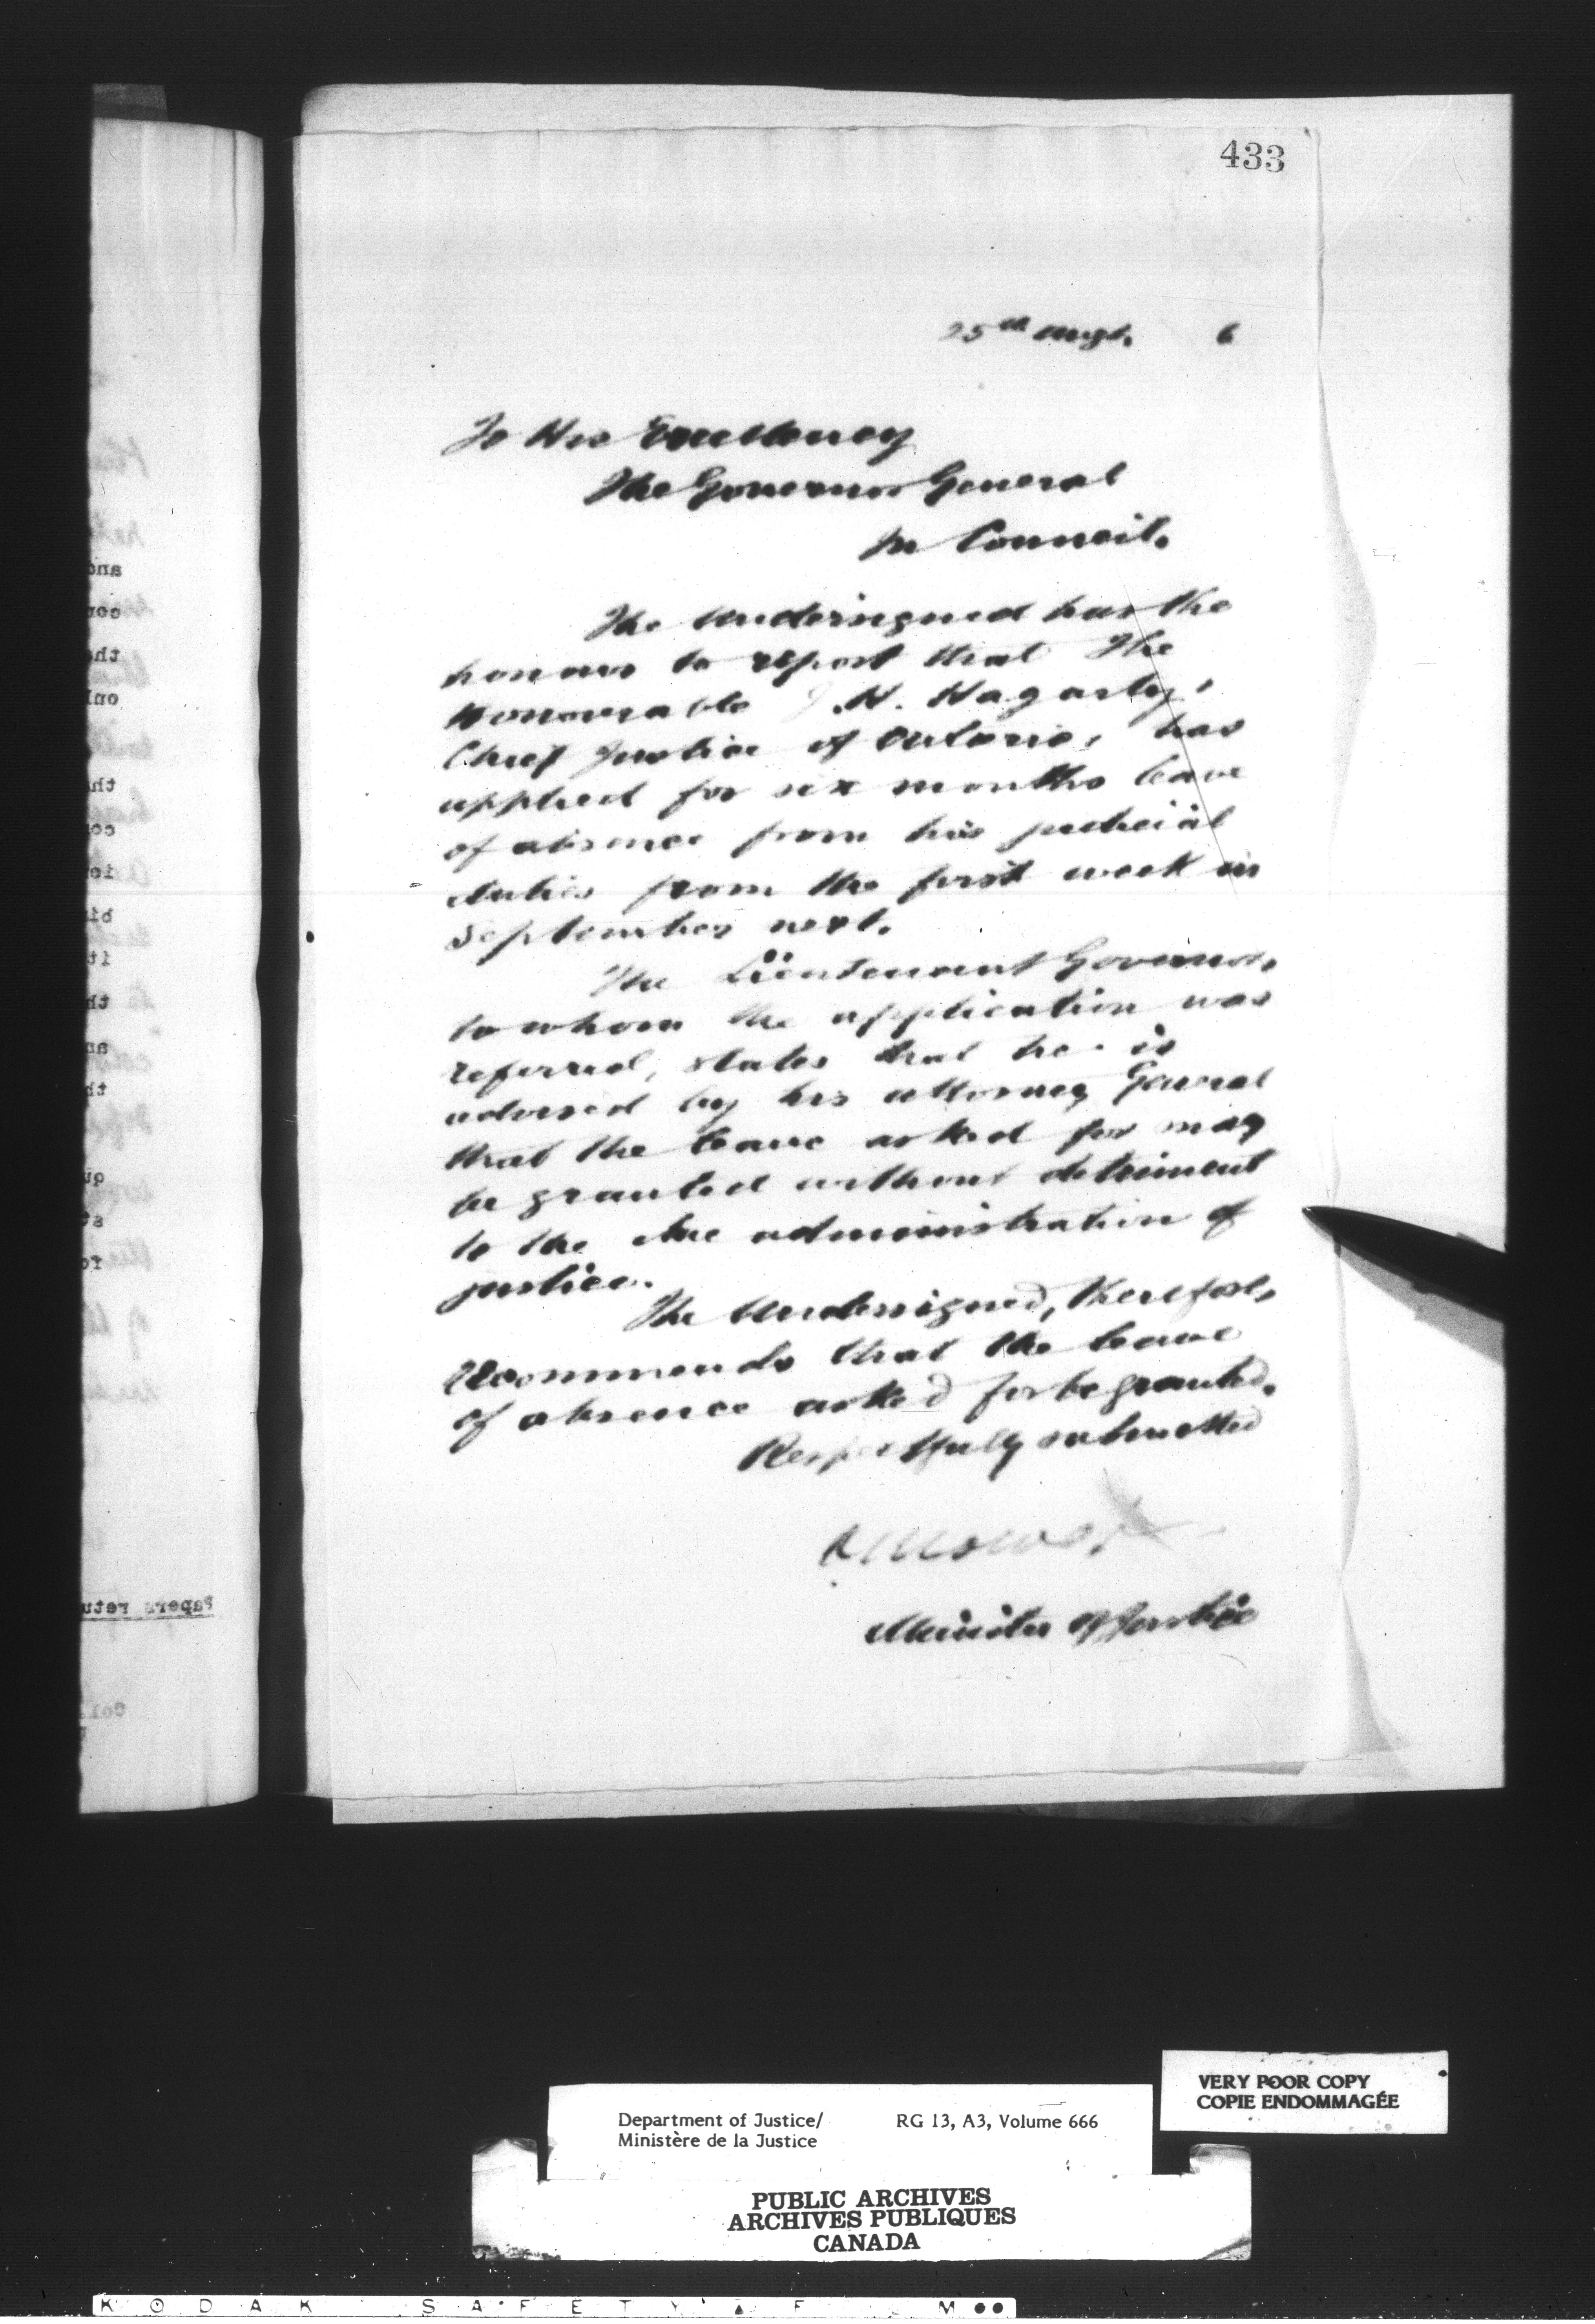 433
25th Augt. 6
To His Excellency
The Governor General
In Council.
The Undersigned has the
honour to report that The
Honourable J. H. Hagarty,
Chief Justice of Ontario, has
applied for six months leave
of absence from his judicial
duties from the first week in
September next.
The Lieutenant Governor,
to whom the application was
referred, states that he is
advised by his Attorney General
that the leave asked for may
be granted without detriment
to the due administration of
justice.
The Undersigned, therefore,
recommends that the leave
of absence asked for be granted.
Respectfully submitted
O. Mowat
Minister of Justice
Papers retu
VERY POOR COPY
COPIE ENDOMMAGÉE
Department of Justice/ RG 13, A3, Volume 666
Ministère de la Justice
PUBLIC ARCHIVES
ARCHIVES PUBLIQUES
CANADA
KODAK SAFETY F M